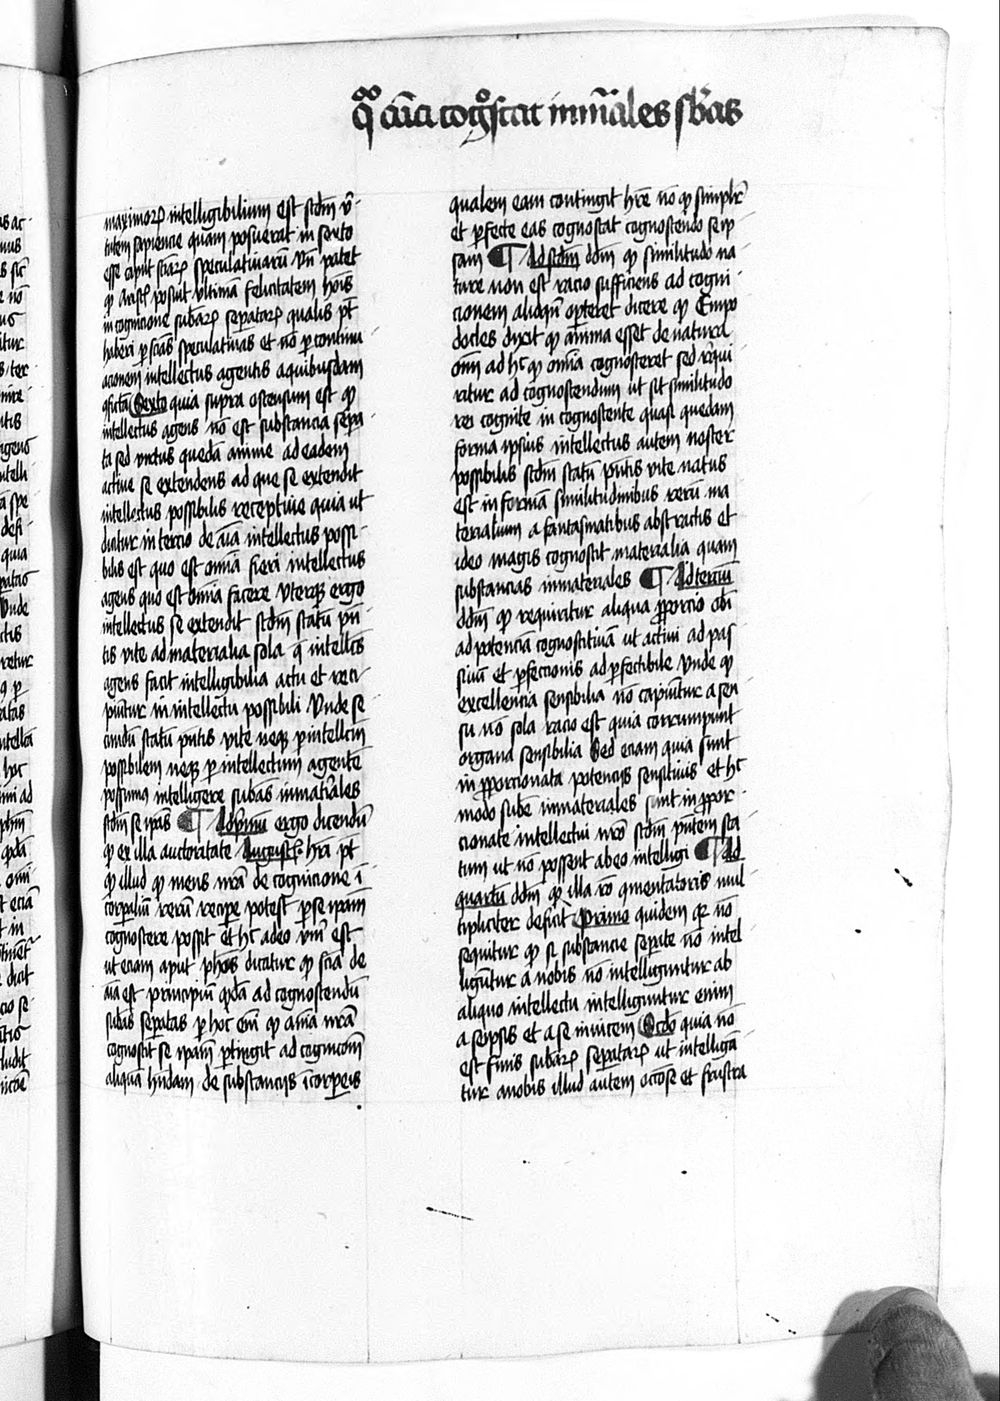 qō aīa cog̊scat inmāles sb̄as
maximoꝝ intelligibilium est scdm v̄
tutem sapiencie quam posuerat in sexto
esse caput sciaꝝ speculatiuarū vn̄ patet
ꝙ Aristˡ posuit vltimā felicitatem hoīs
in cognicione subaꝝ separataꝝ qualis pt̄
haberi ꝑ scīas speculatiuas et nō ꝑ continu
acionem intellectus agentis a quibusdam
ꝯfictā Sexto quia supra ostensum est ꝙ
intellectus agens nō est substancia sepa
ta sed virtus quedā anime ad eadem
actiue se extendens ad que se extendit
intellectus possibilis receptiue quia ut
dicitur in tercio de aīa intellectus possi
bilis est quo est omīa fieri intellectus
agens quo est omīa facere Uterqꝫ ergo
intellectus se extendit scdm statū pn̄
tis vite ad materialia sola q̄ intellc̄s
agens facit intelligibilia actu et reci
piūtur in intellectu possibili Unde se
cundū statū pn̄tis vite neqꝫ ꝑ intellcm̄
possibilem neqꝫ ꝑ intellectum agentē
possumꝰ intelligere subas inmaīales
scdm se ip̄as ¶ Ad pmū ergo dicendū
ꝙ ex illa auctoritate Augusti hr̄i pt̄
ꝙ illud ꝙ mens nrā de cognicione ī
corꝑaliū rerū recipe potest ꝑ se ip̄am
cognoscere possit et hͨ adeo verū est
ut eciam aput ph̄os dicatur ꝙ scīa de
aīa est principiū qdā ad cognoscendū
subas sepatas ꝑ hoc em̄ ꝙ aīma nrā
cognoscit se ip̄am ꝑtingit ad cognicōm̄
aliquā hn̄dam de substancijs īcorꝑeis
qualem eam contingit hr̄e nō ꝙ simplr̄
et ꝑfecte eas cognoscat cognoscendo seip
sam ¶ Ad scdm dd̄m ꝙ similitudo na
ture non est racio sufficiens ad cogni
cionem alioqn̄ oꝑteret dicere ꝙ Empe
docles dixit ꝙ anima esset de natura
om̄i ad hͨ ꝙ omīa cognosceret sed reqi
ritur ad cognoscendum ut sit similitudo
rei cognite in cognoscente quasi quedam
forma ip̄sius intellectus autem noster
possibilis scdm statū pn̄tis vite natus
est informā similitudinibus rerū ma
terialium a fantasmatibus abstractis et
ideo magis cognoscit materialia quam
substancias inmateriales ¶ Ad terciū
dd̄m ꝙ requiratur aliqua ꝓporcio obi
ad potenciā cognoscitiuā ut actiui ad pas
siuū et ꝑfectionis ad ꝑfectibile Unde ꝙ
excellencia sensibilia nō capiūtur a sen
su nō sola racio est quia corrumpunt
organa sensibilia Sed eciam quia sunt
in ꝓporcionata potencijs sensitiuis et hͨ
modo sube inmateriales sunt in ꝓpor
cionate intellectui nr̄o scdm pn̄tem sta
tum ut nō possent ab eo intelligi ¶ Ad
quartū dd̄m ꝙ illa rō ꝯmentatoris mul
tipliciter deficit Primo quidem qꝛ nō
sequitur ꝙ si substancie sepate nō intel
ligūtur a nobis nō intelliguntur ab
aliquo intellectu intelliguntur enim
a seipsis et a se inuicem Scdo quia nō
est finis subaꝝ separataꝝ ut intelligā
tur a nobis illud autem ociose et frustra